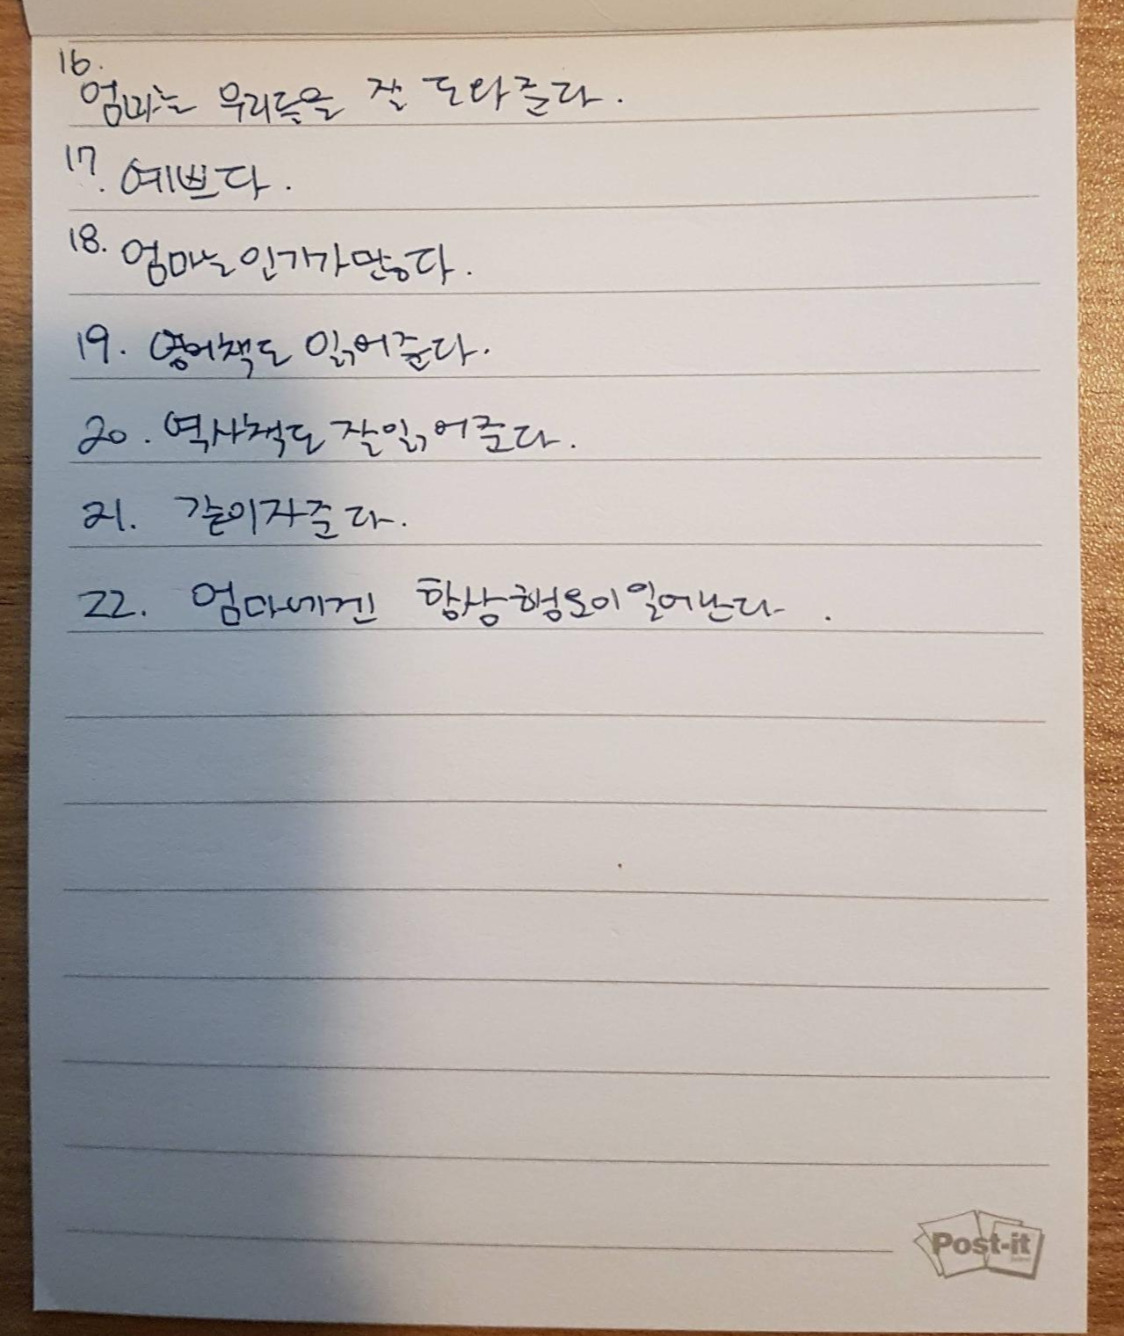 16.
엄마는 우리들을 잘 도와준다.
17. 예쁘다.
18. 엄마는 인기가많다.
19. 영어책도 읽어준다.
20. 역사책도 잘읽어준다.
21. 같이자준다.
22. 엄마에겐 항상행운이일어난다.
Post-it